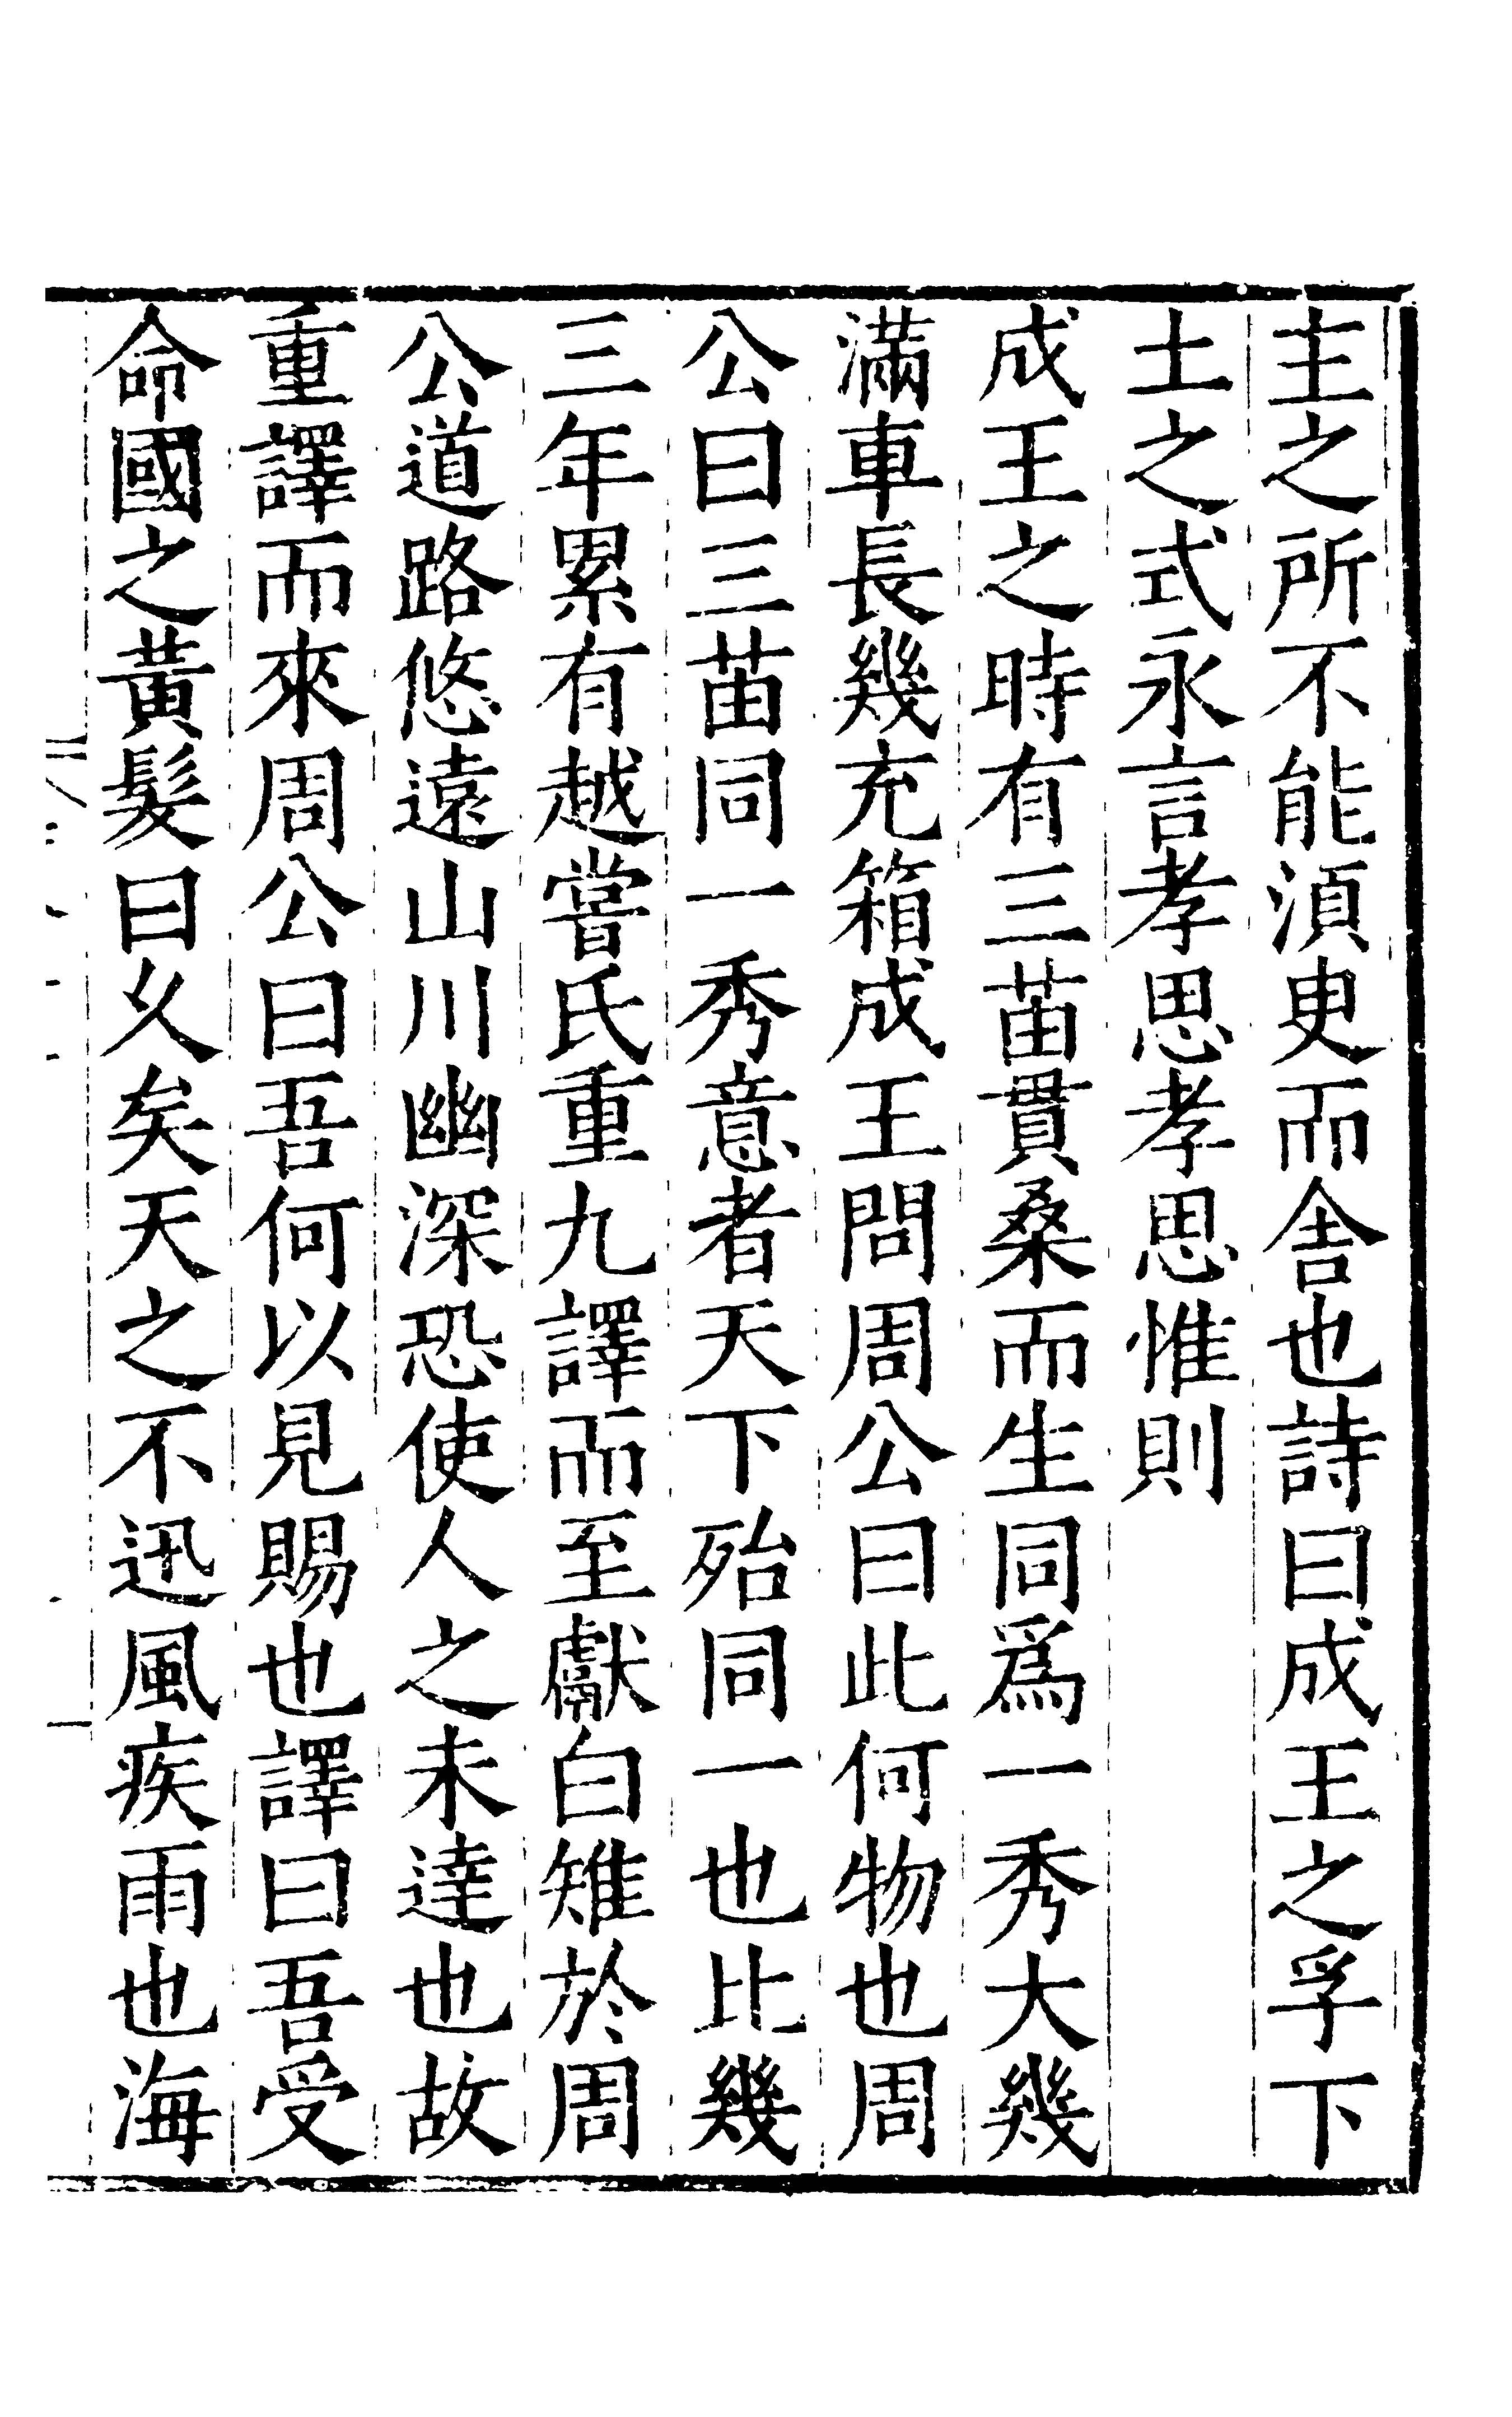 主之所不能湏臾而舎也詩曰成王之孚下
土之式永言孝思孝思惟則
成王之時有三苗貫桑而生同爲一秀大幾
滿車長幾充箱成王問周公曰此何物也周
公曰三苗同一秀意者天下殆同一也比幾
三年累有越嘗氏重九譯而至獻白雉於周
公道路悠遠山川幽深恐使人之未達也故
重譯而來周公曰吾何以見賜也譯曰吾受
命國之黃髮曰乆矣天之不迅風疾雨也海